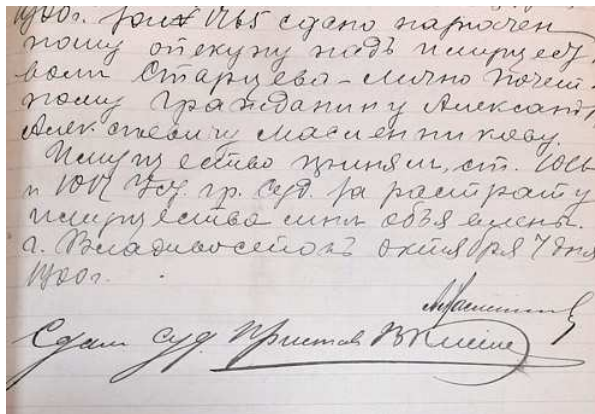 1900г. за № 1765 сдано назначен
ному опекуну надъ имущест
вомъ Старцева - лично почет
ному гражданину Александр
Алексѣевичу Масленникову.
Имущество принялъ, ст.
и 1017 Уст. гр. суд. за растрату
имущества мнѣ объявлены.
г. Владивостокъ октября 7 дня
1900г.
Сдалъ суд. Приставъ